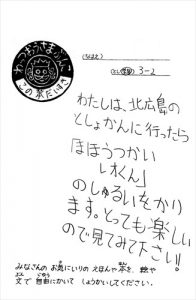 わっつようさまぶんこ
この本だいすき
(なまえ)
(とし・学年) 3-2
わたしは、北広島の
としょかんに行ったら
「まほうつかい
レオくん」
のしゅるいをかり
ます。とっても楽しい
ので見てみて下さい!
みなさんのお気にいりのえほんや本を、絵や
文で自由にかいてしょうかいしてください。